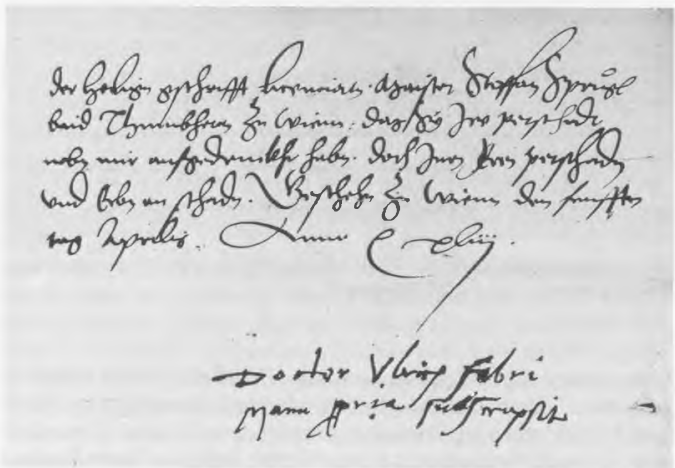 der heiligen gschrifft licenciaten. Maister Steffan Sprügl
baid Thumbhern zu Wienn. das sy Jre petschadt
nebn mir aufgedruckht habn. doch Jnen Jren petschadn
und Erbn an schadn. Beschehn zu Wienn den funfften
tag Aprilis. Anno xliiij.
Doctor Vlrich Fabri
Manu ppria subscripsit